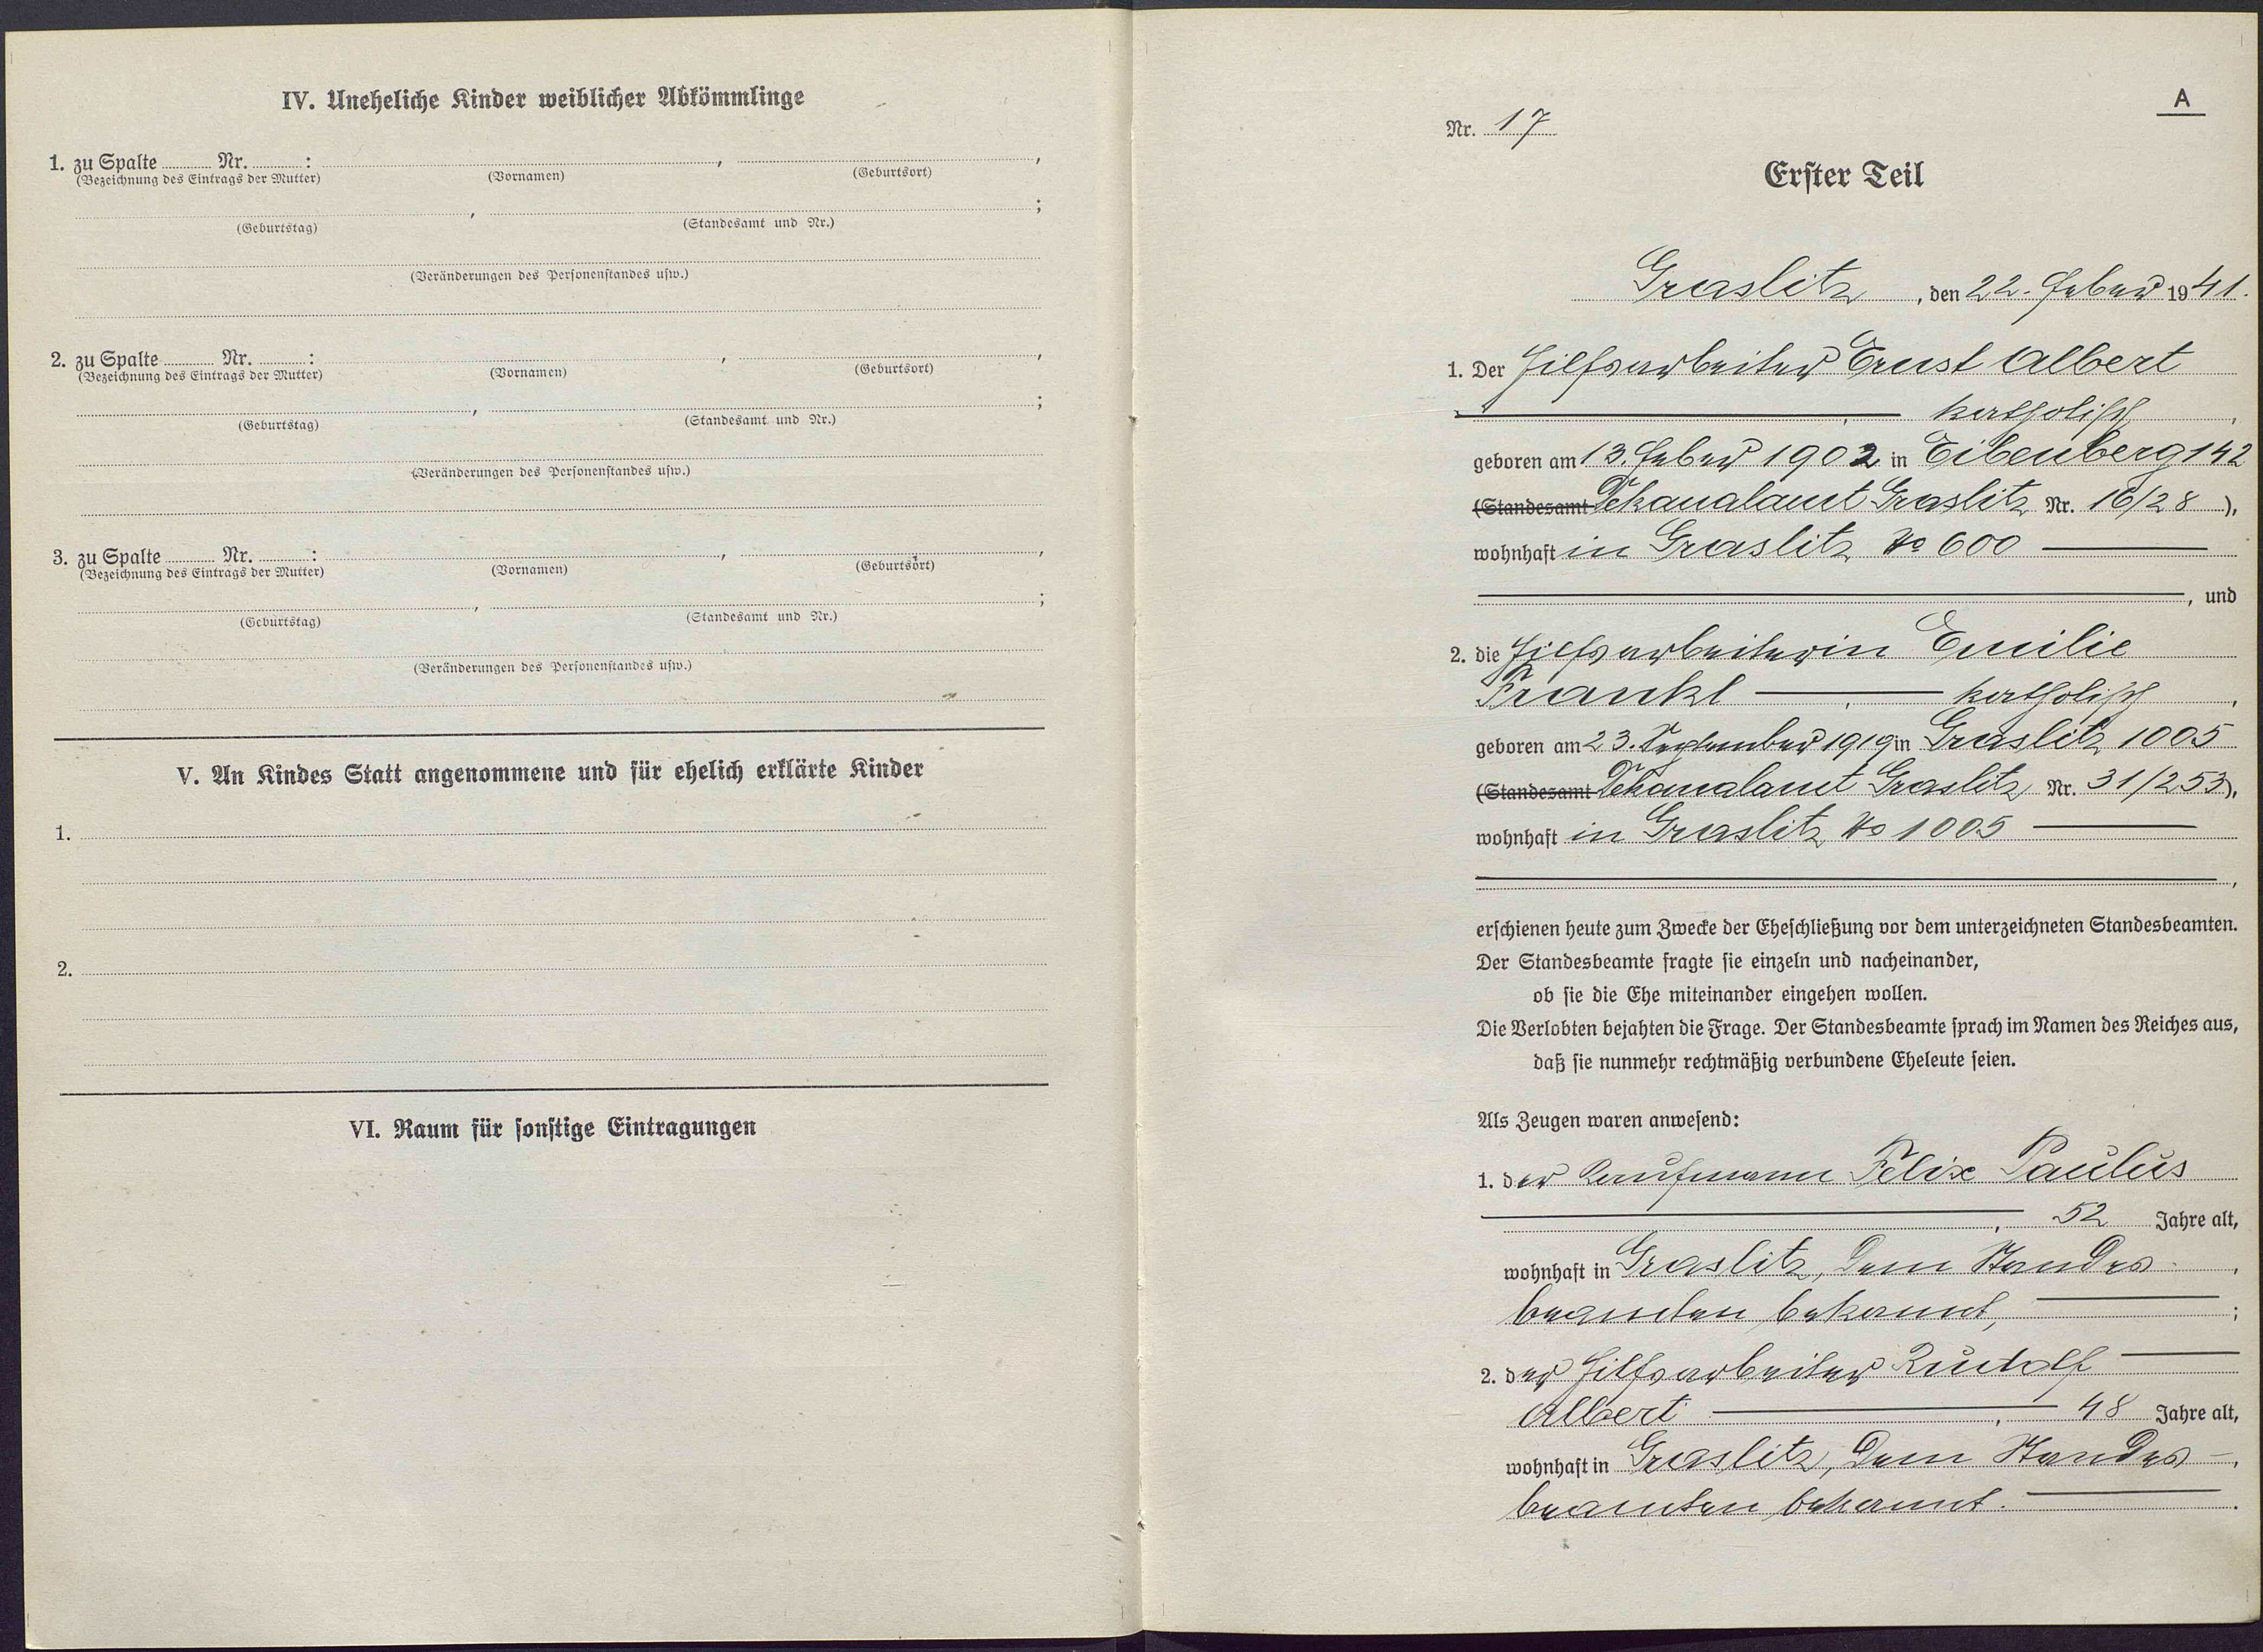 IV. Uneheliche Kinder weiblicher Abkömmlinge
1. zu Spalte Nr. : , ,
(Bezeichnung des Eintrags der Mutter) (Vornamen) (Geburtsort)
, ;
(Geburtstag) (Standesamt und Nr.)
(Veränderungen des Personenstandes usw.)
2. zu Spalte Nr. : , ,
(Bezeichnung des Eintrags der Mutter) (Vornamen) (Geburtsort)
, ;
(Geburtstag) (Standesamt und Nr.)
(Veränderungen des Personenstandes usw.)
3. zu Spalte Nr. : , ,
(Bezeichnung des Eintrags der Mutter) (Vornamen) (Geburtsort)
, ;
(Geburtstag) (Standesamt und Nr.)
(Veränderungen des Personenstandes usw.)
V. An Kindes Statt angenommene und für ehelich erklärte Kinder
1.
2.
VI. Raum für sonstige Eintragungen
A
Nr. 17
Erster Teil
Graslitz, den 22. Feber 1941.
1. Der Hilfsarbeiter Ernst Albert
, katholisch,
geboren am 13. Feber 1902 in Eibenberg 142
(Standesamt Dekanalamt Graslitz Nr. 16/28),
wohnhaft in Graslitz No 600
, und
2. die Hilfsarbeiterin Emilie
Frankl, katholisch,
geboren am 23. September 1919 in Graslitz 1005
(Standesamt Dekanalamt Graslitz Nr. 31/253),
wohnhaft in Graslitz No 1005
,
erschienen heute zum Zwecke der Eheschließung vor dem unterzeichneten Standesbeamten.
Der Standesbeamte fragte sie einzeln und nacheinander,
ob sie die Ehe miteinander eingehen wollen.
Die Verlobten bejahten die Frage. Der Standesbeamte sprach im Namen des Reiches aus,
daß sie nunmehr rechtmäßig verbundene Eheleute seien.
Als Zeugen waren anwesend:
1. der Kaufmann Felix Paulus
, 52 Jahre alt,
wohnhaft in Graslitz, dem Standes-,
beamten bekannt, ;
2. der Hilfsarbeiter Rudolf
Albert, 48 Jahre alt,
wohnhaft in Graslitz, dem Standes-,
beamten bekannt.